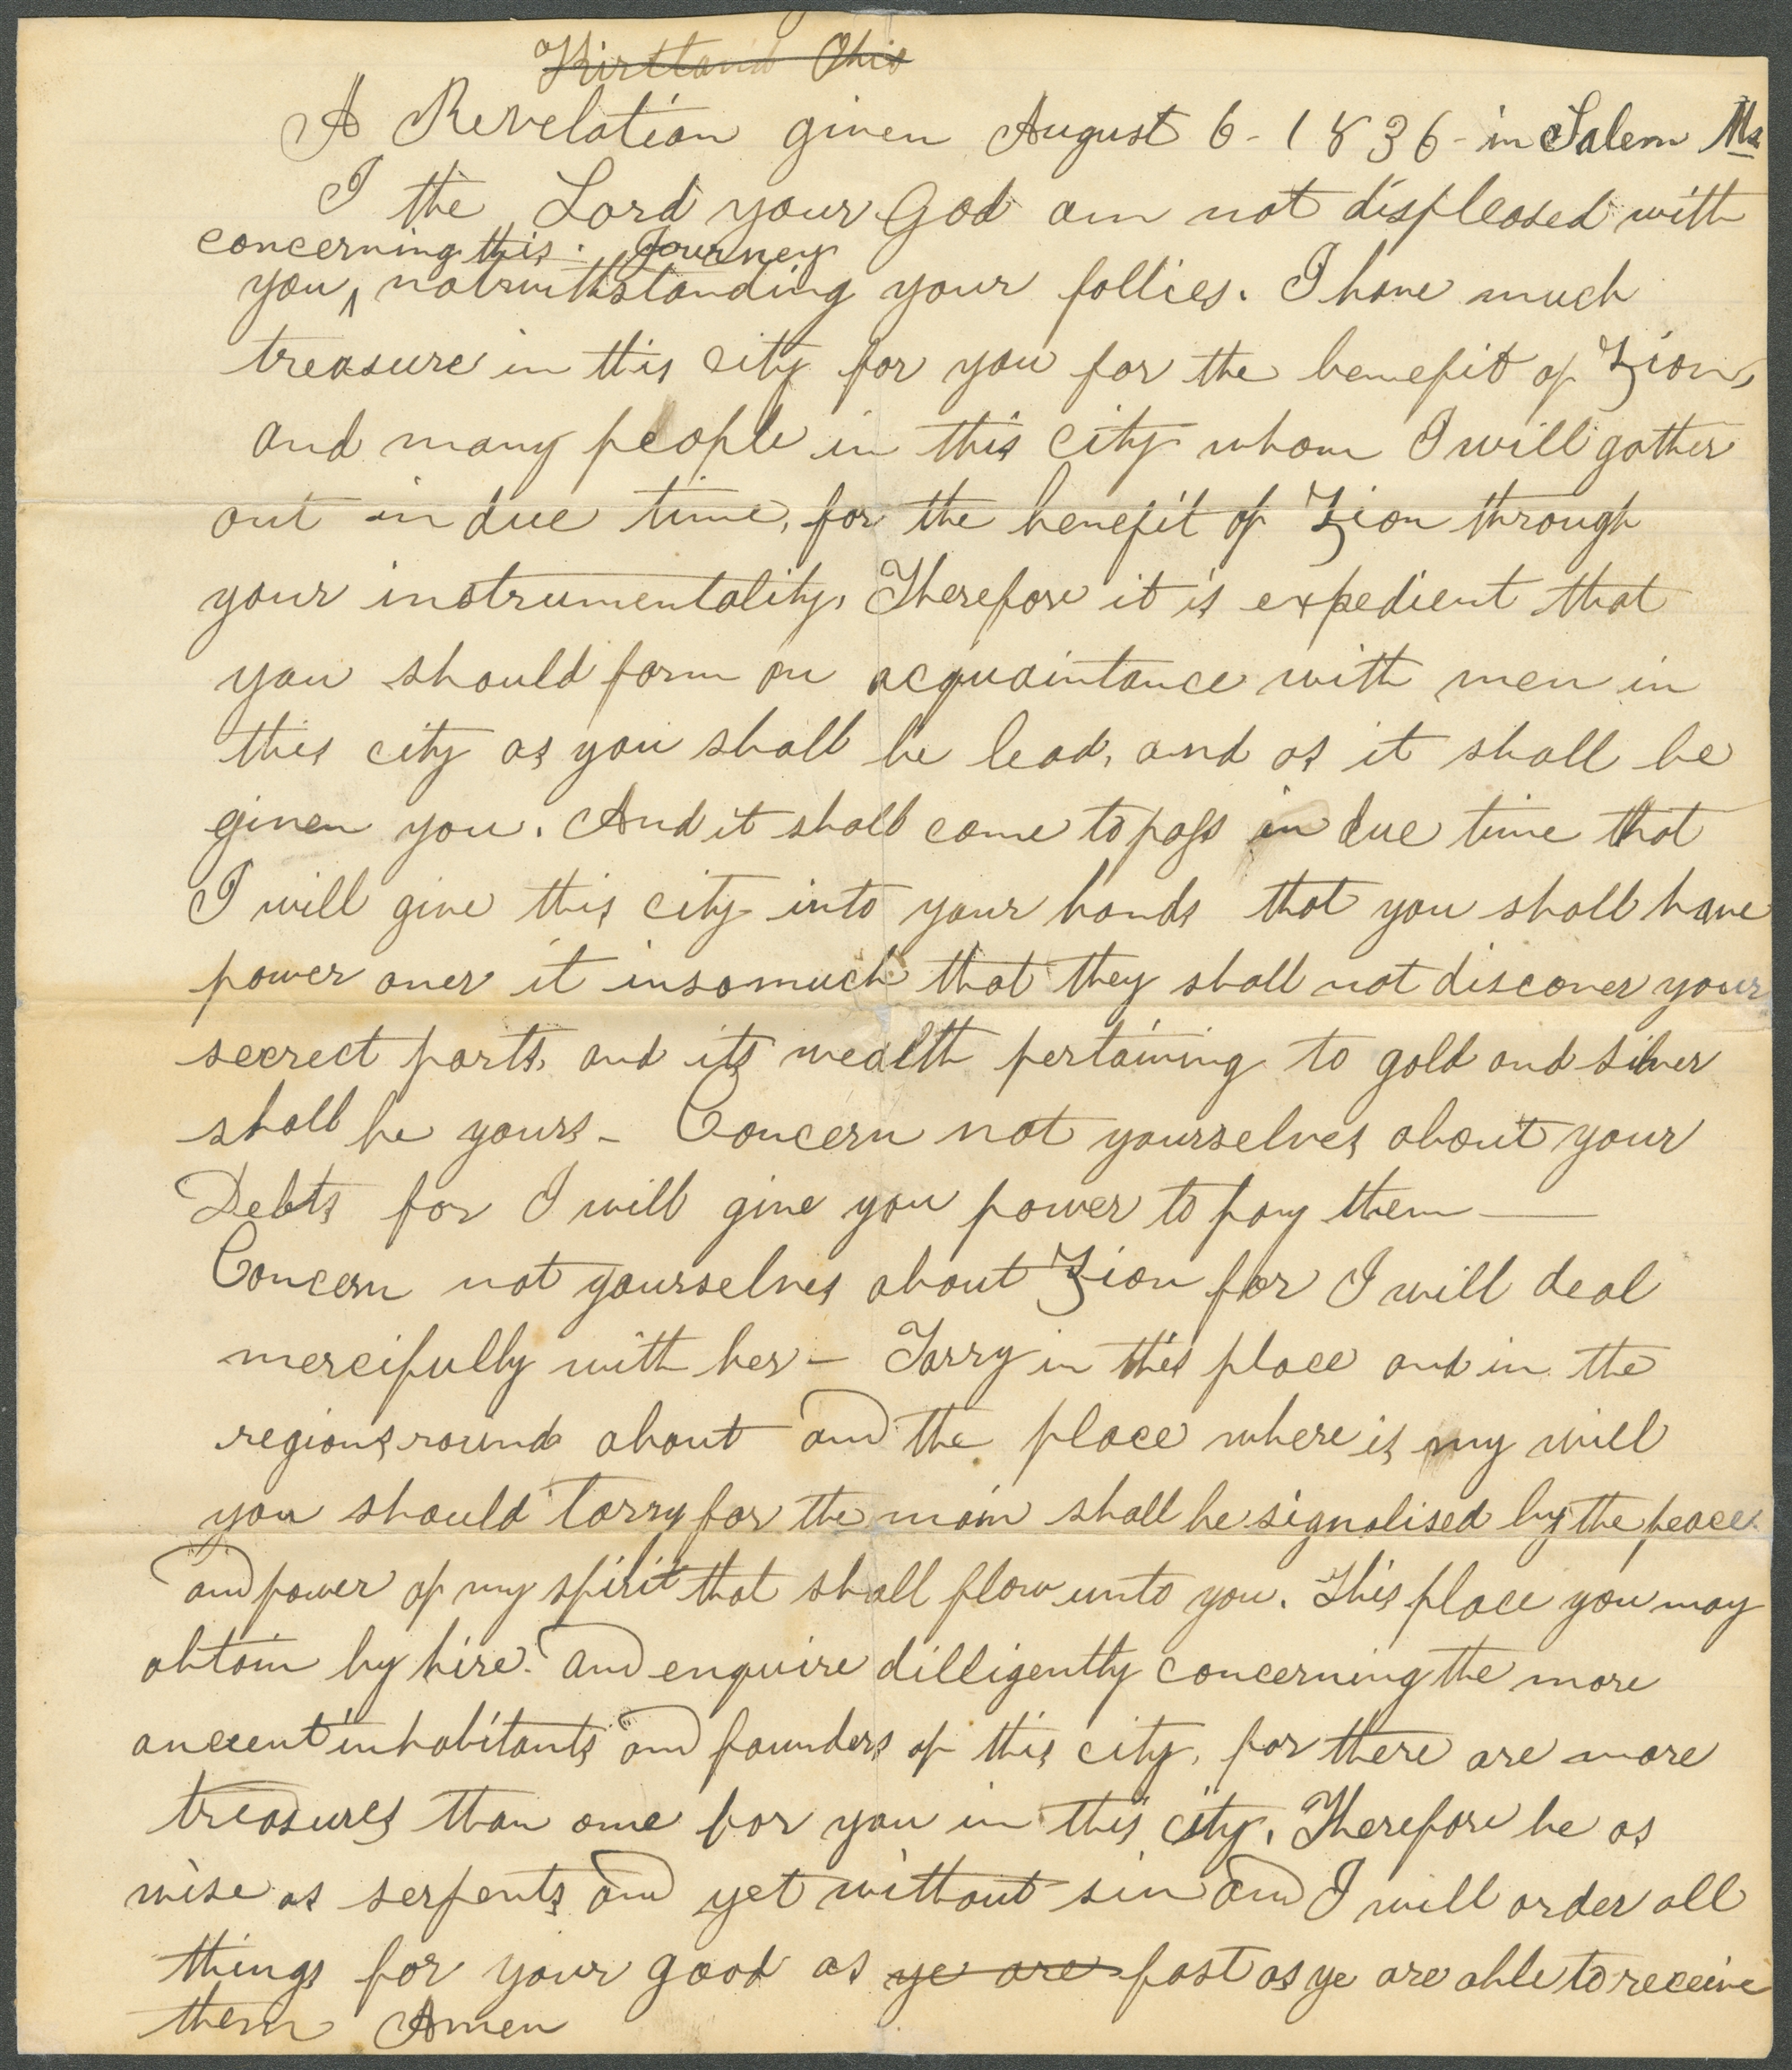 Kirtland Ohio
A Revelation given August 6 - 1836 - in Salem Ma
I the Lord your God am not displeased with
concerning this Journey
you ^ notwithstanding your follies. I have much
treasure in this city for you for the benefit of Zion,
and many people in this city whom I will gather
out in due time, for the benefit of Zion through
your instrumentality, Therefore it is expedient that
you should form an acquaintance with men in
this city as you shall be lead, and as it shall be
given you. And it shall come to pass in due time that
I will give this city into your hands that you shall have
power over it insomuch that they shall not discover your
secrect parts, and its wealth pertaining to gold and silver
shall be yours - Concern not yourselves about your
Debts for I will give you power to pay them —
Concern not yourselves about Zion for I will deal
mercifully with her - Tarry in this place and in the
regions round about and the place where is my will
you should tarry for the main shall be signalised by the peace
and power of my spirit that shall flow unto you. This place you may
obtain by hire. and enquire dilligently concerning the more
ancient inhabitants and founders of this city, for there are more
treasures than one for you in this city, Therefore be as
wise as serpents and yet without sin and I will order all
things for your good as ye are fast as ye are able to receive
them Amen